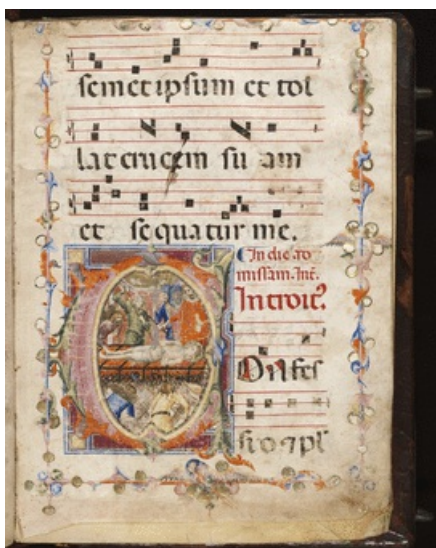 semetipsum et tol
lat crucem su am
et sequatur me.
In die ad
missam. Int.
Onfes
sio